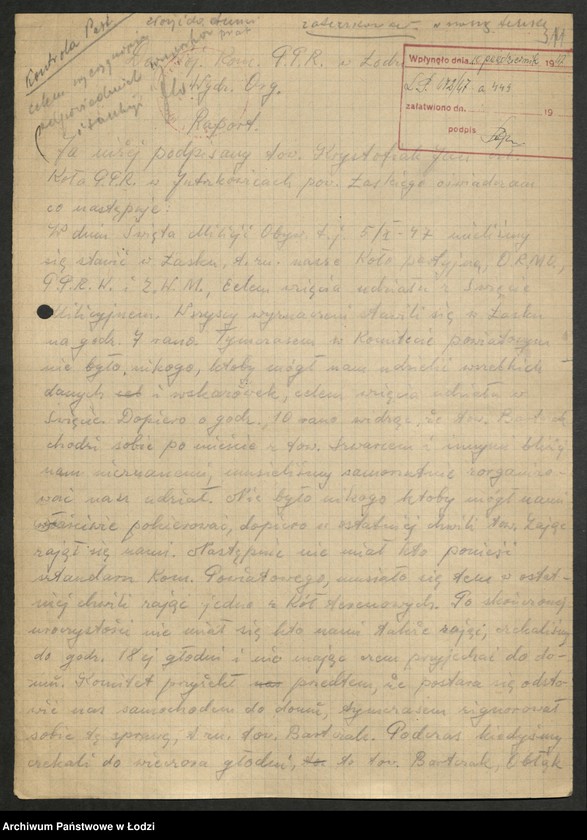 Kontrola Part.
celem wyciągnięcia
odpowiednich
zatrzkować.
Wpłynęło dnia 10 październik 19
L.p. 172/47 a 443
załatwiono dn. 19
podpis
Kom. P.P.R. w Łodzi
Wydz. Org.
Raport.
Ja niżej podpisany tow. Krysztofiak Jan
Koła P.P.R. w Jutrkowicach pow. Łaskiego oświadczam
co następuje:
W dniu Święta Milicji Obyw. t. j. 5/X-47 mieliśmy
się stawić w Łasku, t. zn. nasze Koło partyjne, O.R.M.O.,
P.P.R.W. i Z.W.M., celem wzięcia udziału z Święcie
Milicyjnem. Wszyscy wyznaczeni stawili się w Łasku
na godz. 7 rano tymczasem w Komitecie powiatowym
nie było, nikogo, ktoby mógł nam udzielić wszelkich
danych i wskazówek, celem wzięcia udziału w
Święcie. Dopiero o godz. 10 rano widząc, że tow. Bartczak
chodzi sobie po mieście z tow. Szwarcem i innymi bliżej
nam nieznanemi, musieliśmy samorzutnie zorganizo-
wać nasz udział. Nie było nikogo ktoby mógł nami
właściwie pokierować, dopiero w ostatniej chwili tow. Zając
zajął się nami. Następnie nie miał kto ponieść
sztandaru Kom. Powiatowego, musiało się tem w ostat-
niej chwili zająć jedno z Kół terenowych. Po skończonej
uroczystości nie miał się kto nami także zająć, czekaliśmy
do godz. 18ej głodni i nie mając czem przyjechać do do-
mu. Komitet przyrzekł przedtem, że postara się odsta-
wić nas samochodem do domu, tymczasem zignorował
sobie tę sprawę, t. zn. tow. Bartczak. Podczas kiedyśmy
czekali do wieczora głodni, to tow. Bartczak, Obłąk
Archiwum Państwowe w Łodzi